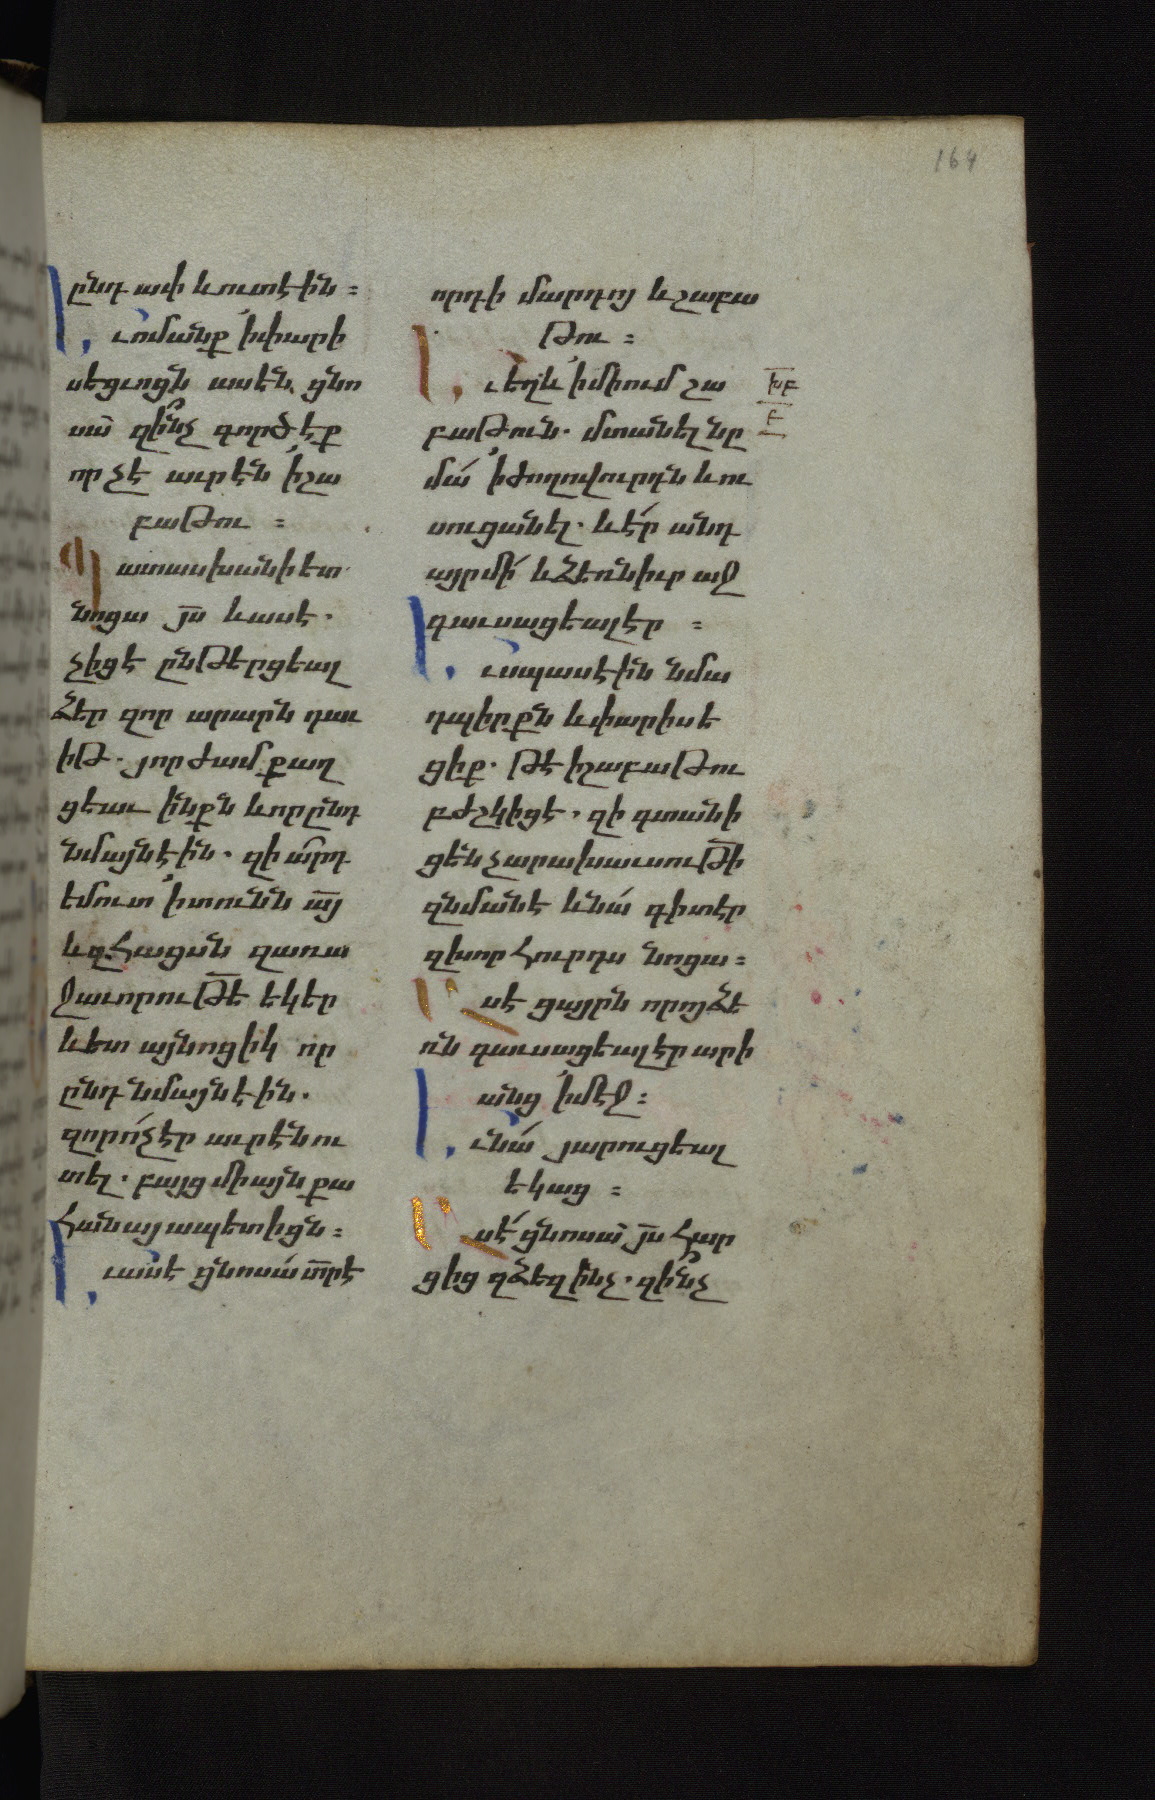 164
ընդ ափ և ուտէին։
Եւ ոմանք ՛ի փարի
սեցւոցն ասեն ցնո
սա՝ զի՞նչ գործէք
որ չէ աւրէն ՛ի շա
բաթու։
Պատասխանի ետ
նոցա յ̅ս և ասէ.
չիցէ ընթերցեալ
ձեր զոր արարն դաւ
իթ. յորժամ քաղ
ցեաւ ինքն և որ ընդ
նմայն էին. զի ա՞րդ
եմուտ ՛ի տունն ա̅յ
և զհացսն զառա
ջաւորութ̅ե եկեր
և ետ այնոցիկ որ
ընդ նմայն էին.
զոր ո՛չ էր աւրէն ու
տել. բայց միայն քա
հանայապետիցն։
Եւ ասէ ցնոսա տ̅ր է
որդի մարդոյ և շաբա
թու։
Եւ եղև ՛ի միւում շա
բաթուն. մտանել նը
մա՛ ՛ի ժողովուրդն և ու
սուցանել. և է՛ր անդ
այր մի՛ և ձեռն իւր աջ
գաւսացեալ էր։
Եւ սպասէին նմա
դպիրքն և փարիսե
ցիք. թէ ի շաբաթու
բժշկիցէ, զի գտանի
ցեն չարախաւսութ̅ի
զնմանէ և նա՛ գիտէր
զխորհուրդս նոցա։
Ասէ ցայրն որոյ ձե
ռն գաւսացեալ էր արի
անց ՛ի մէջ։
Եւ նա՛ յարուցեալ
եկաց։
Ասէ՛ ցնոսա՝ յ̅ս հար
ցից զձեզ ինչ. զի՞նչ
ԽԲ
Բ